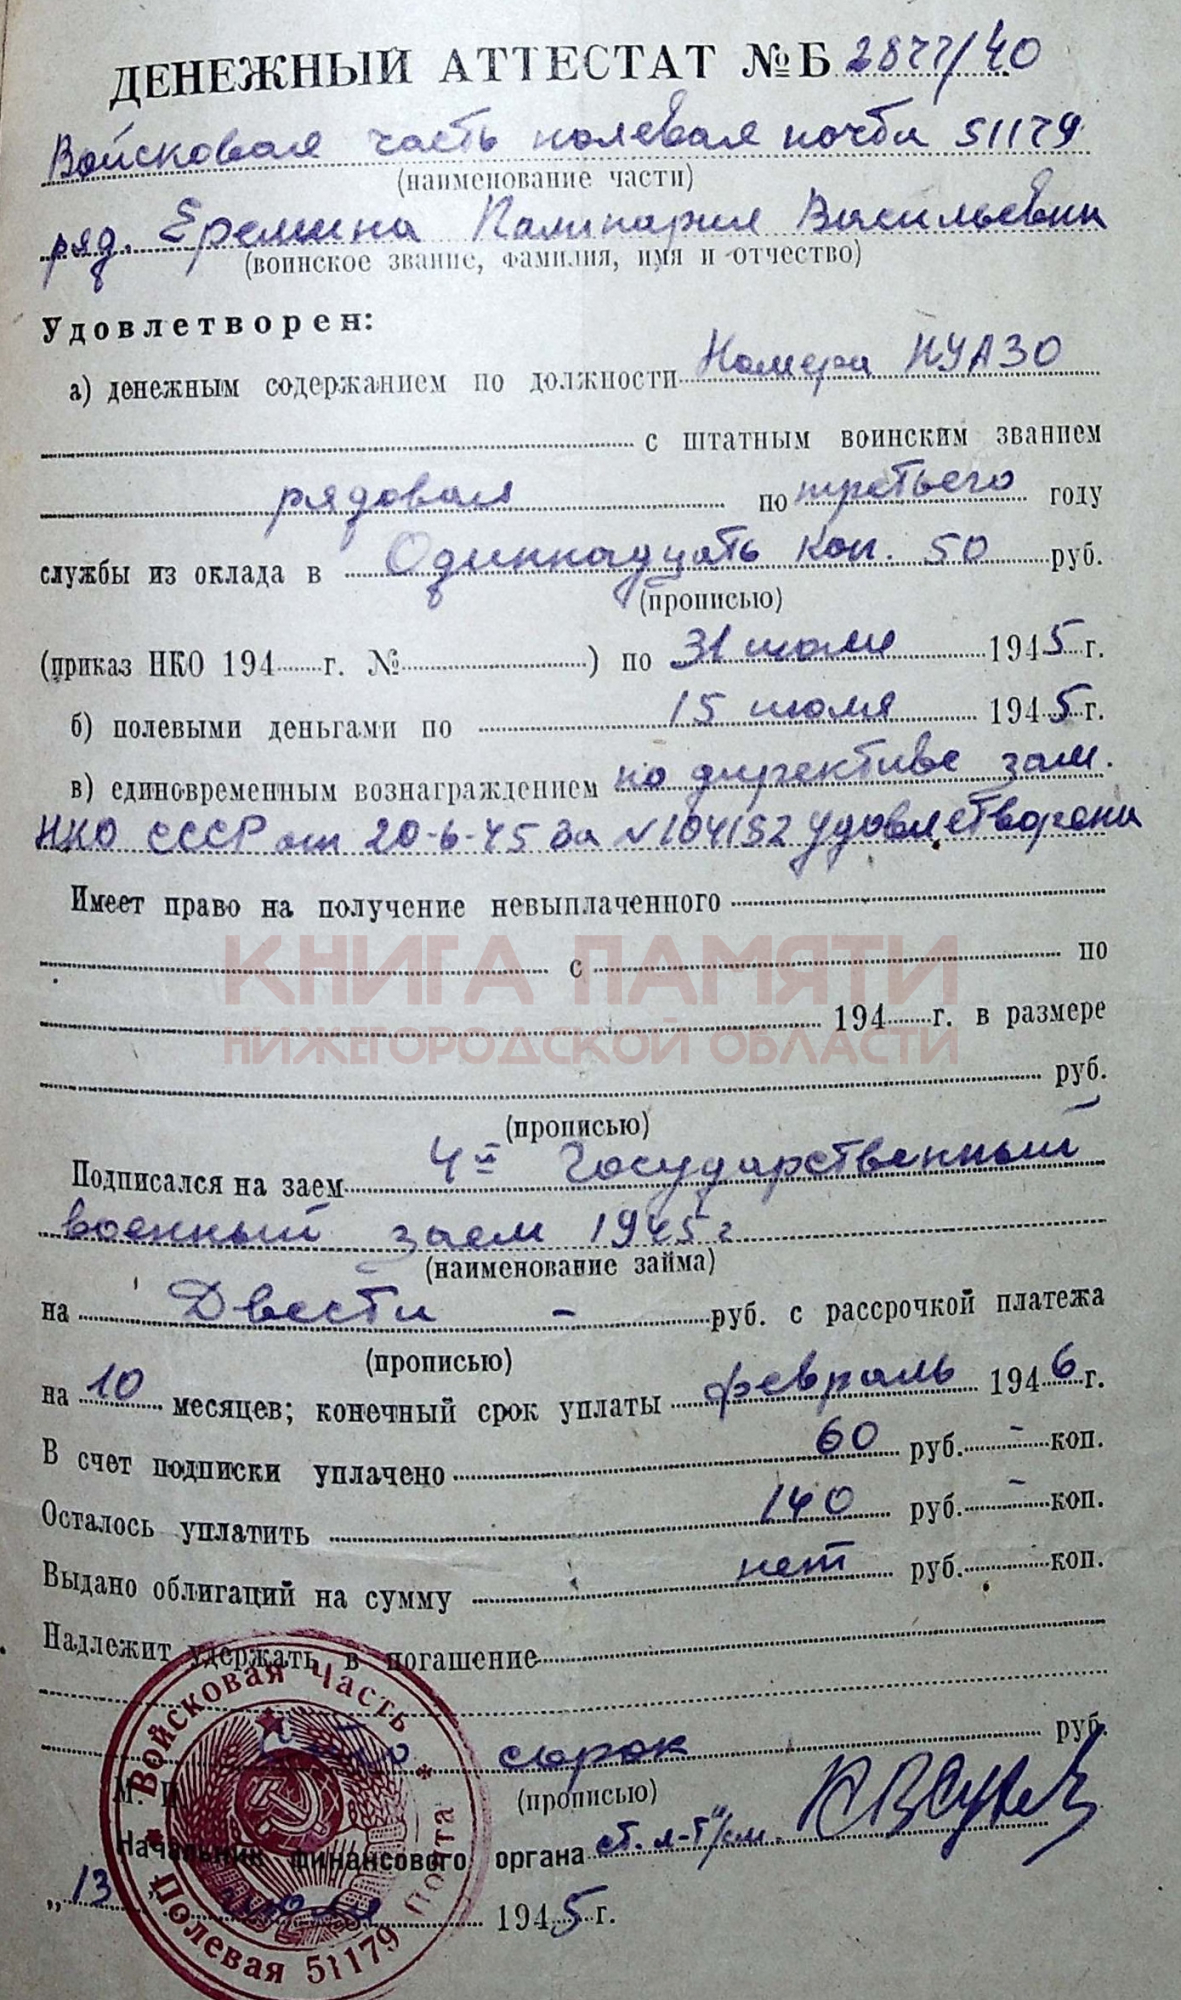 ДЕНЕЖНЫЙ АТТЕСТАТ №Б 2877/40
Войсковая часть полевая почта 51179
(наименование части)
ряд. Еремина Капитария Васильевна
(воинское звание, фамилия, имя и отчество)
Удовлетворен:
а) денежным содержанием по должности Номера ПУАЗО
с штатным воинским званием
рядовая по третьего году
службы из оклада в Одиннадцать коп. 50 руб.
(прописью)
(приказ НКО 194 г. № ) по 31 июля 1945 г.
б) полевыми деньгами по 15 июля 1945 г.
в) единовременным вознаграждением по директиве зам.
НКО СССР от 20-6-45 за №104152 удовлетворена
Имеет право на получение невыплаченного
с по
КНИГА ПАМЯТИ
194 г. в размере
НИЖЕГОРОДСКОЙ ОБЛАСТИ
руб.
(прописью)
Подписался на заем 4й Государственный
военный заем 1945 г
(наименование займа)
на Двести - руб. с рассрочкой платежа
(прописью)
на 10 месяцев; конечный срок уплаты февраль 1946 г.
В счет подписки уплачено 60 руб. - коп.
Осталось уплатить 140 руб. - коп.
Выдано облигаций на сумму нет руб. коп.
Надлежит удержать в погашение
Сто сорок руб.
М. П. (прописью)
Начальник финансового органа ст. л-т а/см.
„13 июля 1945 г.
Войсковая Часть
Полевая 51179 Почта